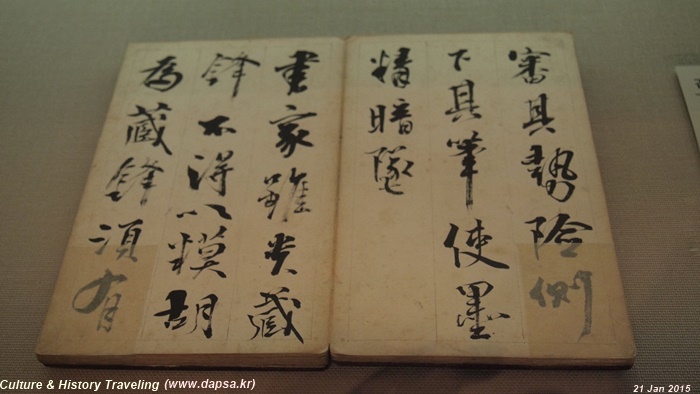 審其勢險側
下其筆使墨
精暗墜
書家雖貴藏
鋒不得以糢胡
為藏鋒須有
Culture & History Traveling (www.dapsa.kr)
21 Jan 2015